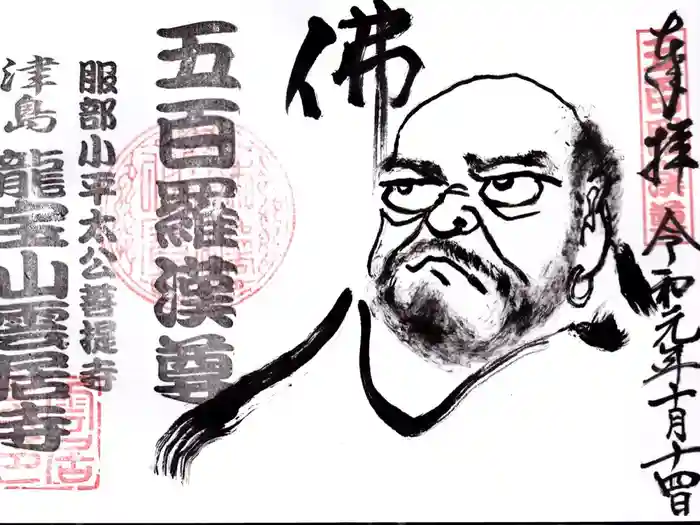 奉拝 令和元年十月十四日
五百羅漢尊
佛
五百羅漢尊
服部小平太公菩提寺
津島 龍宝山雲居寺
雲居